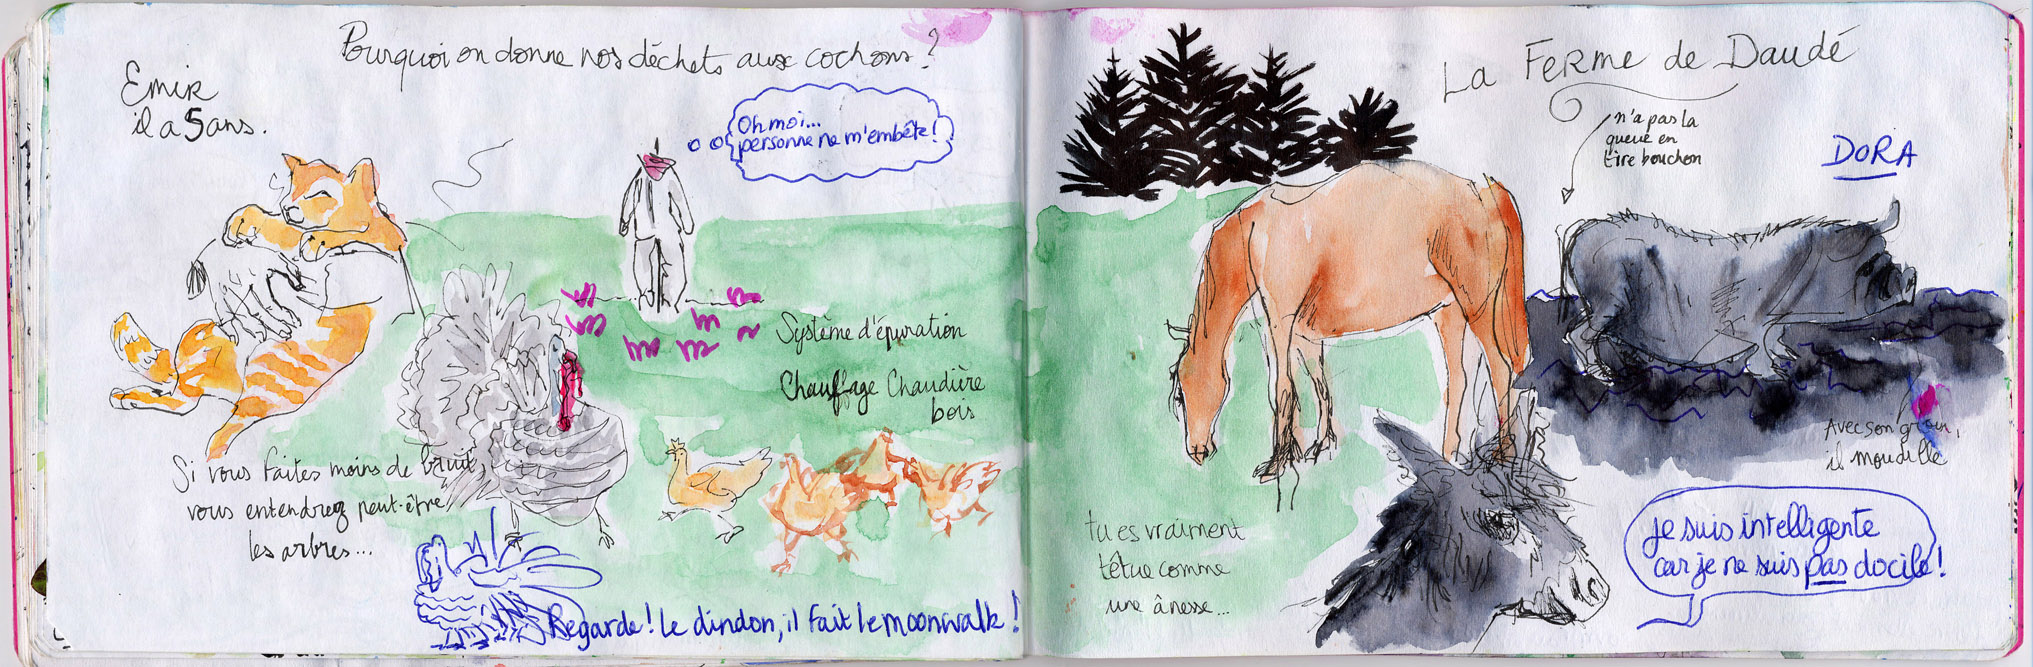 Pourquoi on donne nos déchets aux cochons?
Emir
il a 5 ans.
Oh moi...
personne ne m'embête!
Système d'épuration
Chauffage Chaudière
bois
Si vous faites moins de bruit,
vous entendrez peut-être
les arbres...
Regarde! Le dindon, il fait le moonwalk!
La Ferme de Daudé
n'a pas la
queue en
tire bouchon
DORA
Avec son groin,
il mordille
tu es vraiment
têtue comme
une ânesse...
je suis intelligente
car je ne suis pas docile!